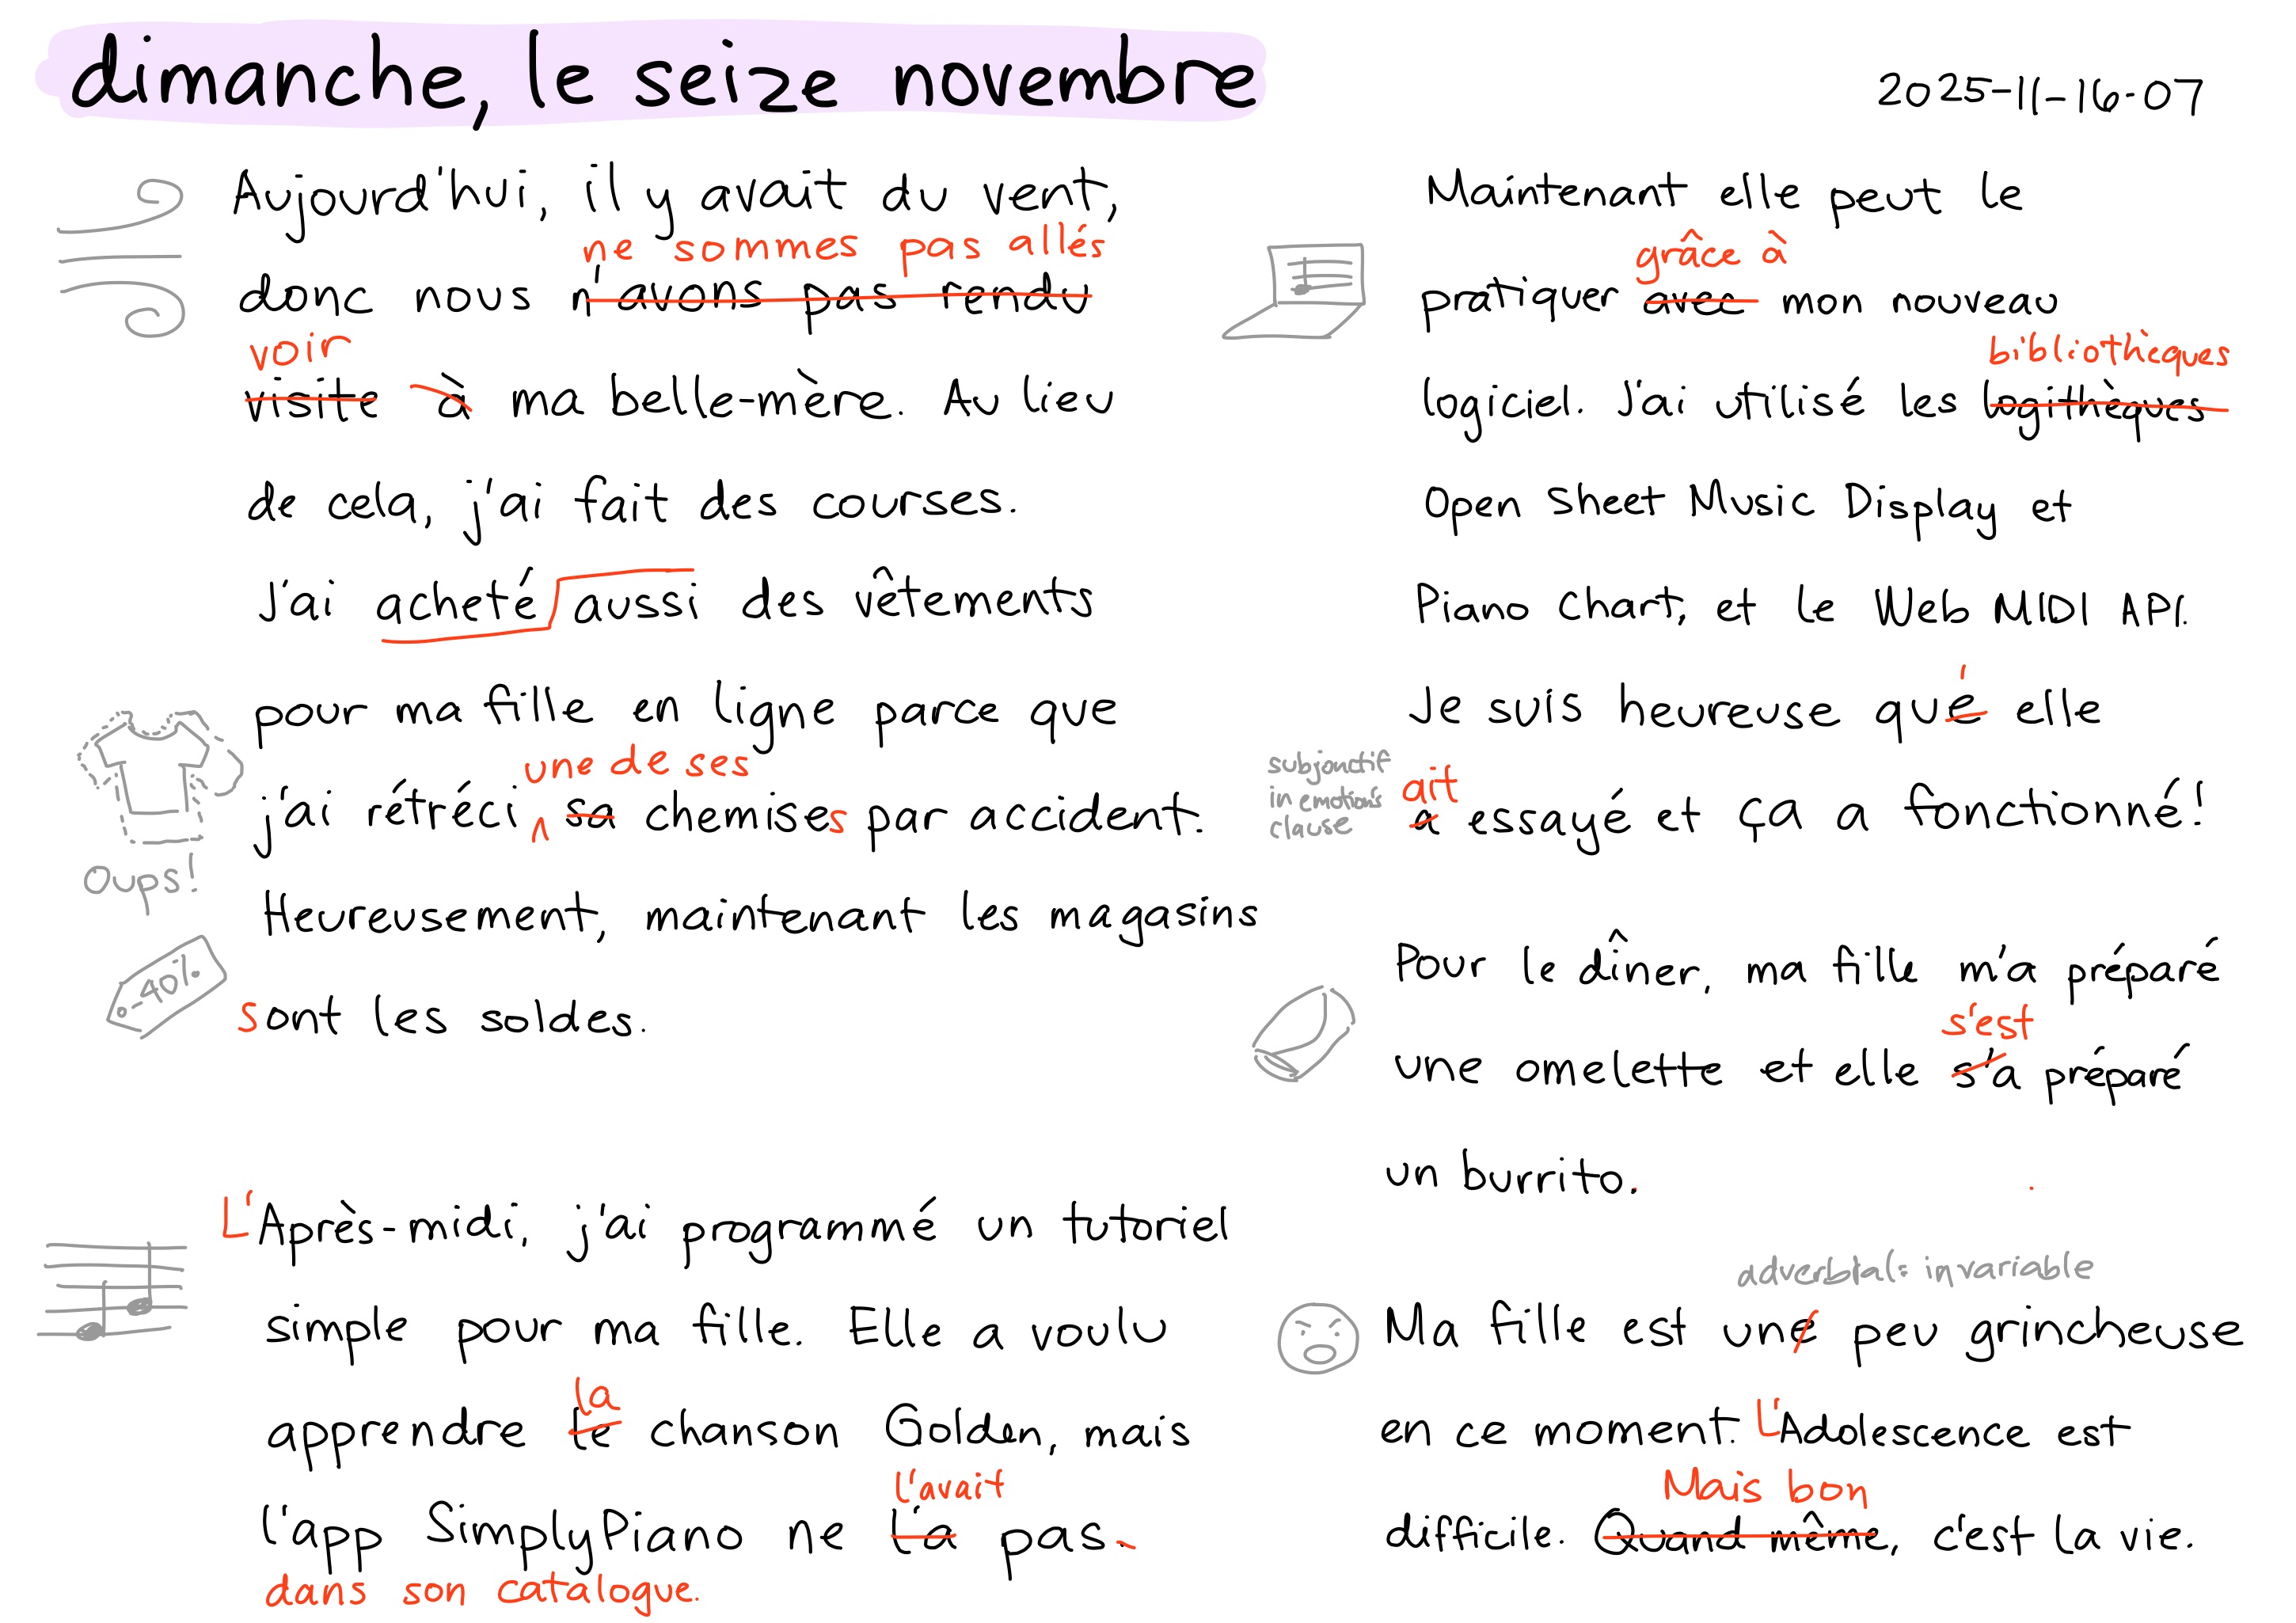 dimanche, le seize novembre
2025-11-16-07
Aujourd'hui, il y avait du vent,
ne sommes pas allés
donc nous n'avons pas rendu
voir
visite à ma belle-mère. Au lieu
de cela, j'ai fait des courses.
J'ai acheté aussi des vêtements
pour ma fille en ligne parce que
une de ses
j'ai rétréci sa chemises par accident.
Oups!
Heureusement, maintenant les magasins
-40%
sont les soldes.
L'Après-midi, j'ai programmé un tutoriel
simple pour ma fille. Elle a voulu
la
apprendre le chanson Golden, mais
l'avait
l'app SimplyPiano ne l'a pas.
dans son catalogue.
Maintenant elle peut le
grâce à
pratiquer avec mon nouveau
bibliothèques
logiciel. J'ai utilisé les logithèques
Open Sheet Music Display et
Piano Chart, et le Web MIDI API.
Je suis heureuse qu'e elle
subjonctif
in emotions
clause
ait
a essayé et ça a fonctionné!
Pour le dîner, ma fille m'a préparé
s'est
une omelette et elle s'a préparé
un burrito.
adverbial: invariable
Ma fille est une peu grincheuse
en ce moment. L'Adolescence est
Mais bon
difficile. Quand même, c'est la vie.